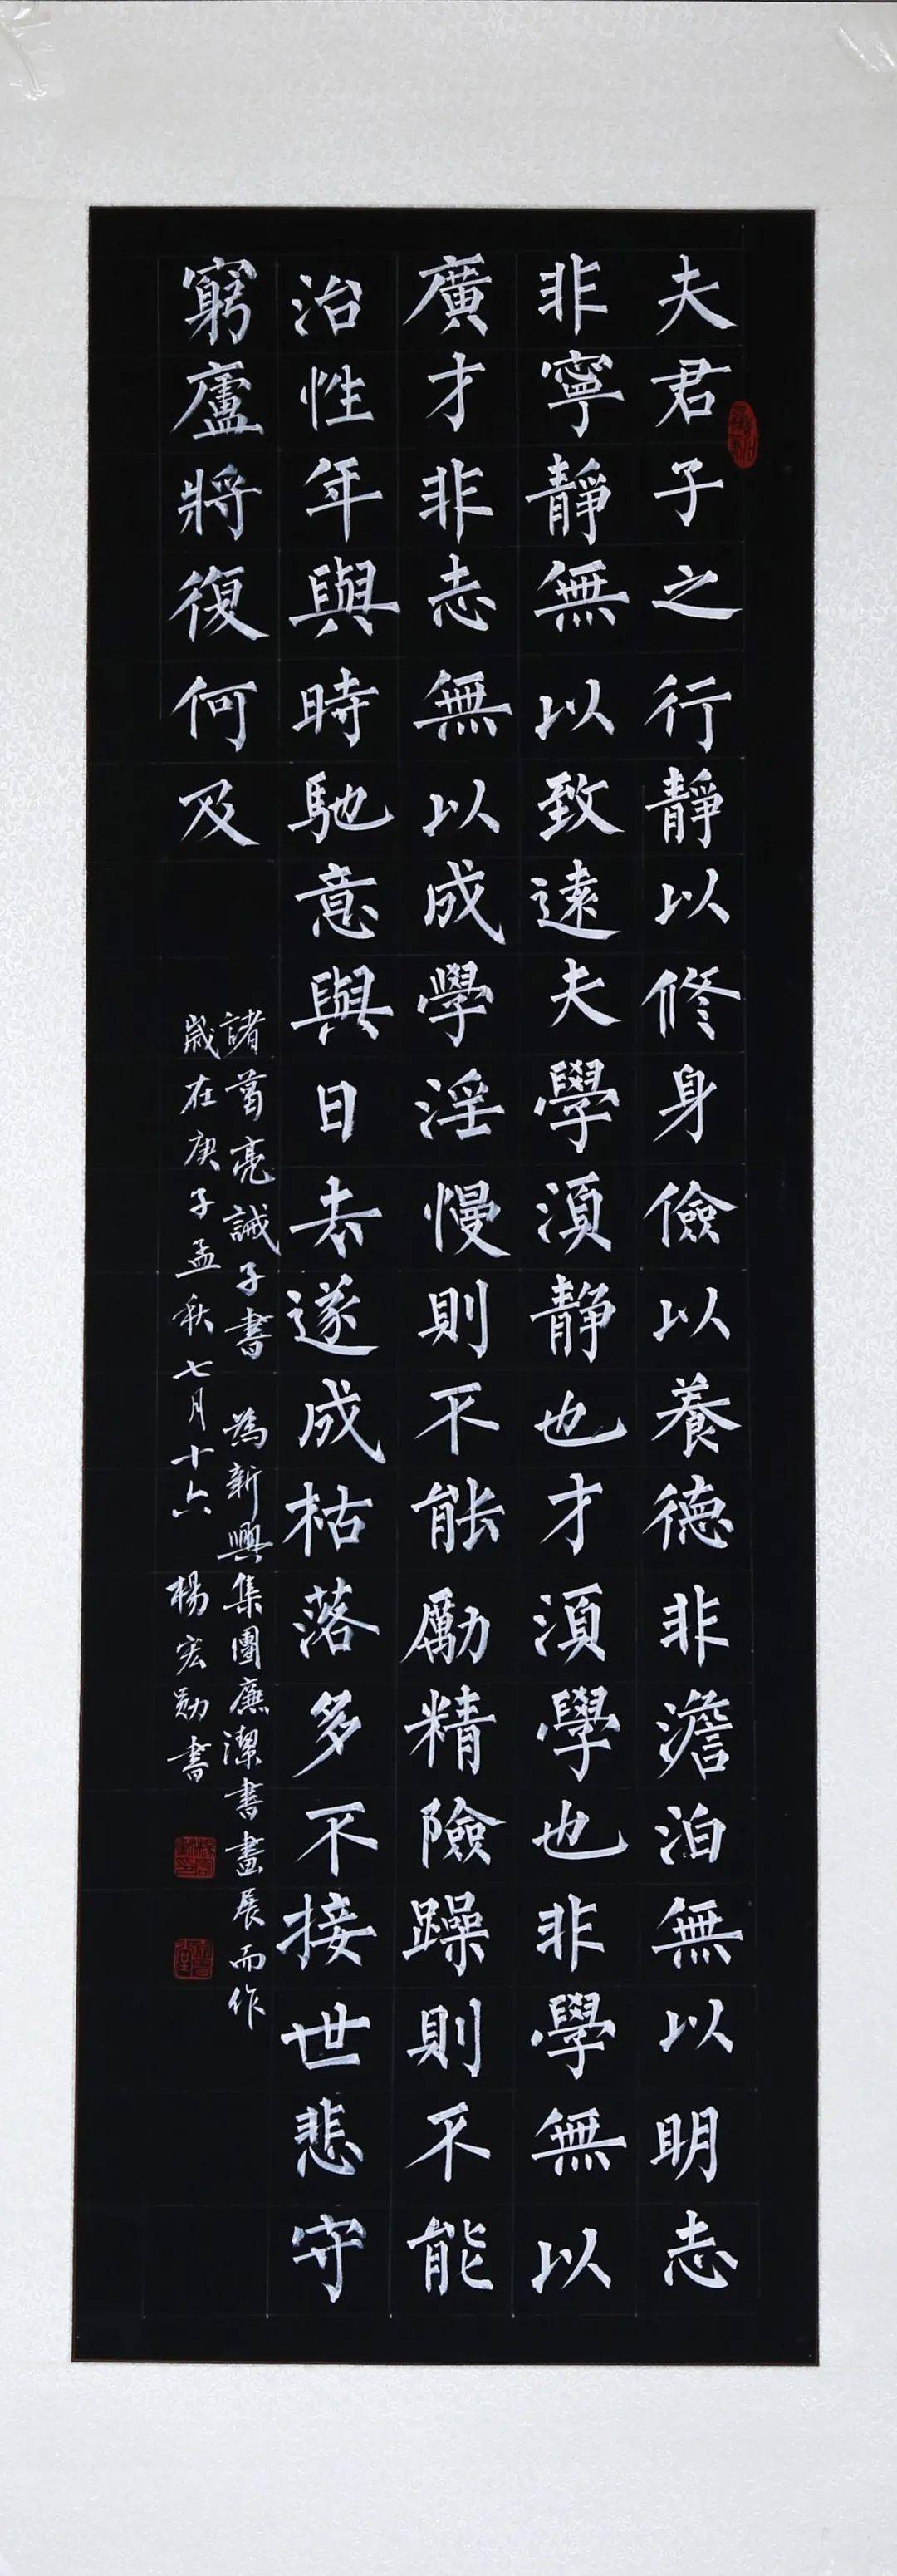 夫君子之行靜以修身儉以養德非澹泊無以明志
非寧靜無以致遠夫學須靜也才須學也非學無以
廣才非志無以成學淫慢則不能勵精險躁則不能
治性年與時馳意與日去遂成枯落多不接世悲守
窮廬將復何及
諸葛亮誡子書 為新興集團廉潔書畫展而作
歲在庚子孟秋七月十六 楊宏勛書